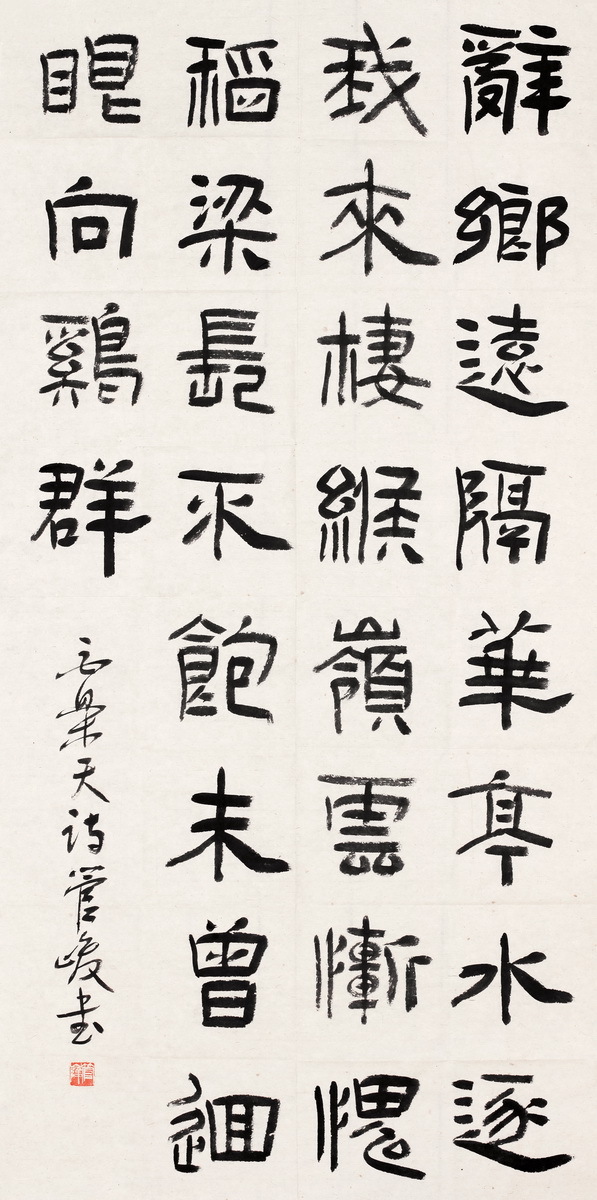 辭鄉遠隔華亭水逐
我來棲緱嶺雲慚愧
稻梁長不飽未曾迴
眼向鷄群
白樂天詩管峻書